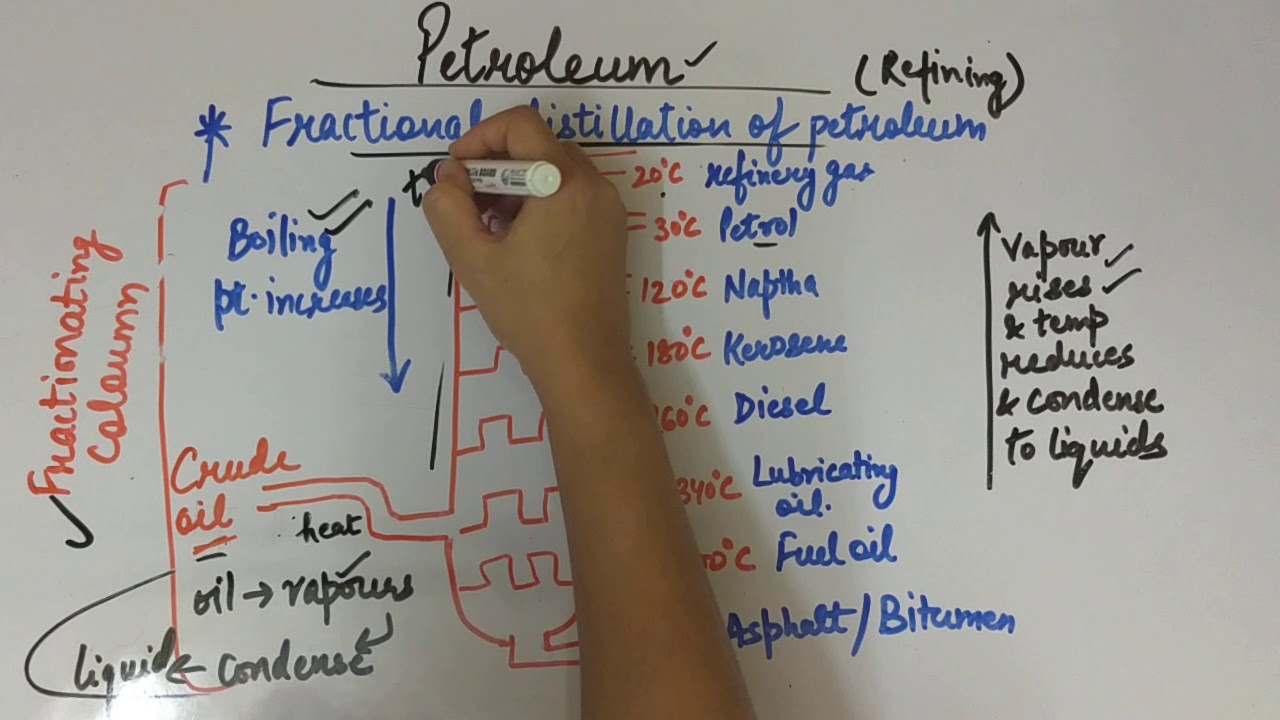 Petroleum
(Refining)
* Fractional distillation of petroleum
20°C refinery gas
30°C Petrol
120°C Naptha
180°C Kerosene
60°C Diesel
340°C Lubricating
oil.
0°C Fuel oil
Asphalt/Bitumen
Boiling
pt. increases
Fractionating
Coloumn
Crude
oil
heat
oil → vapours
liquid ← condense
vapour
rises
& temp
reduces
& condense
to liquids